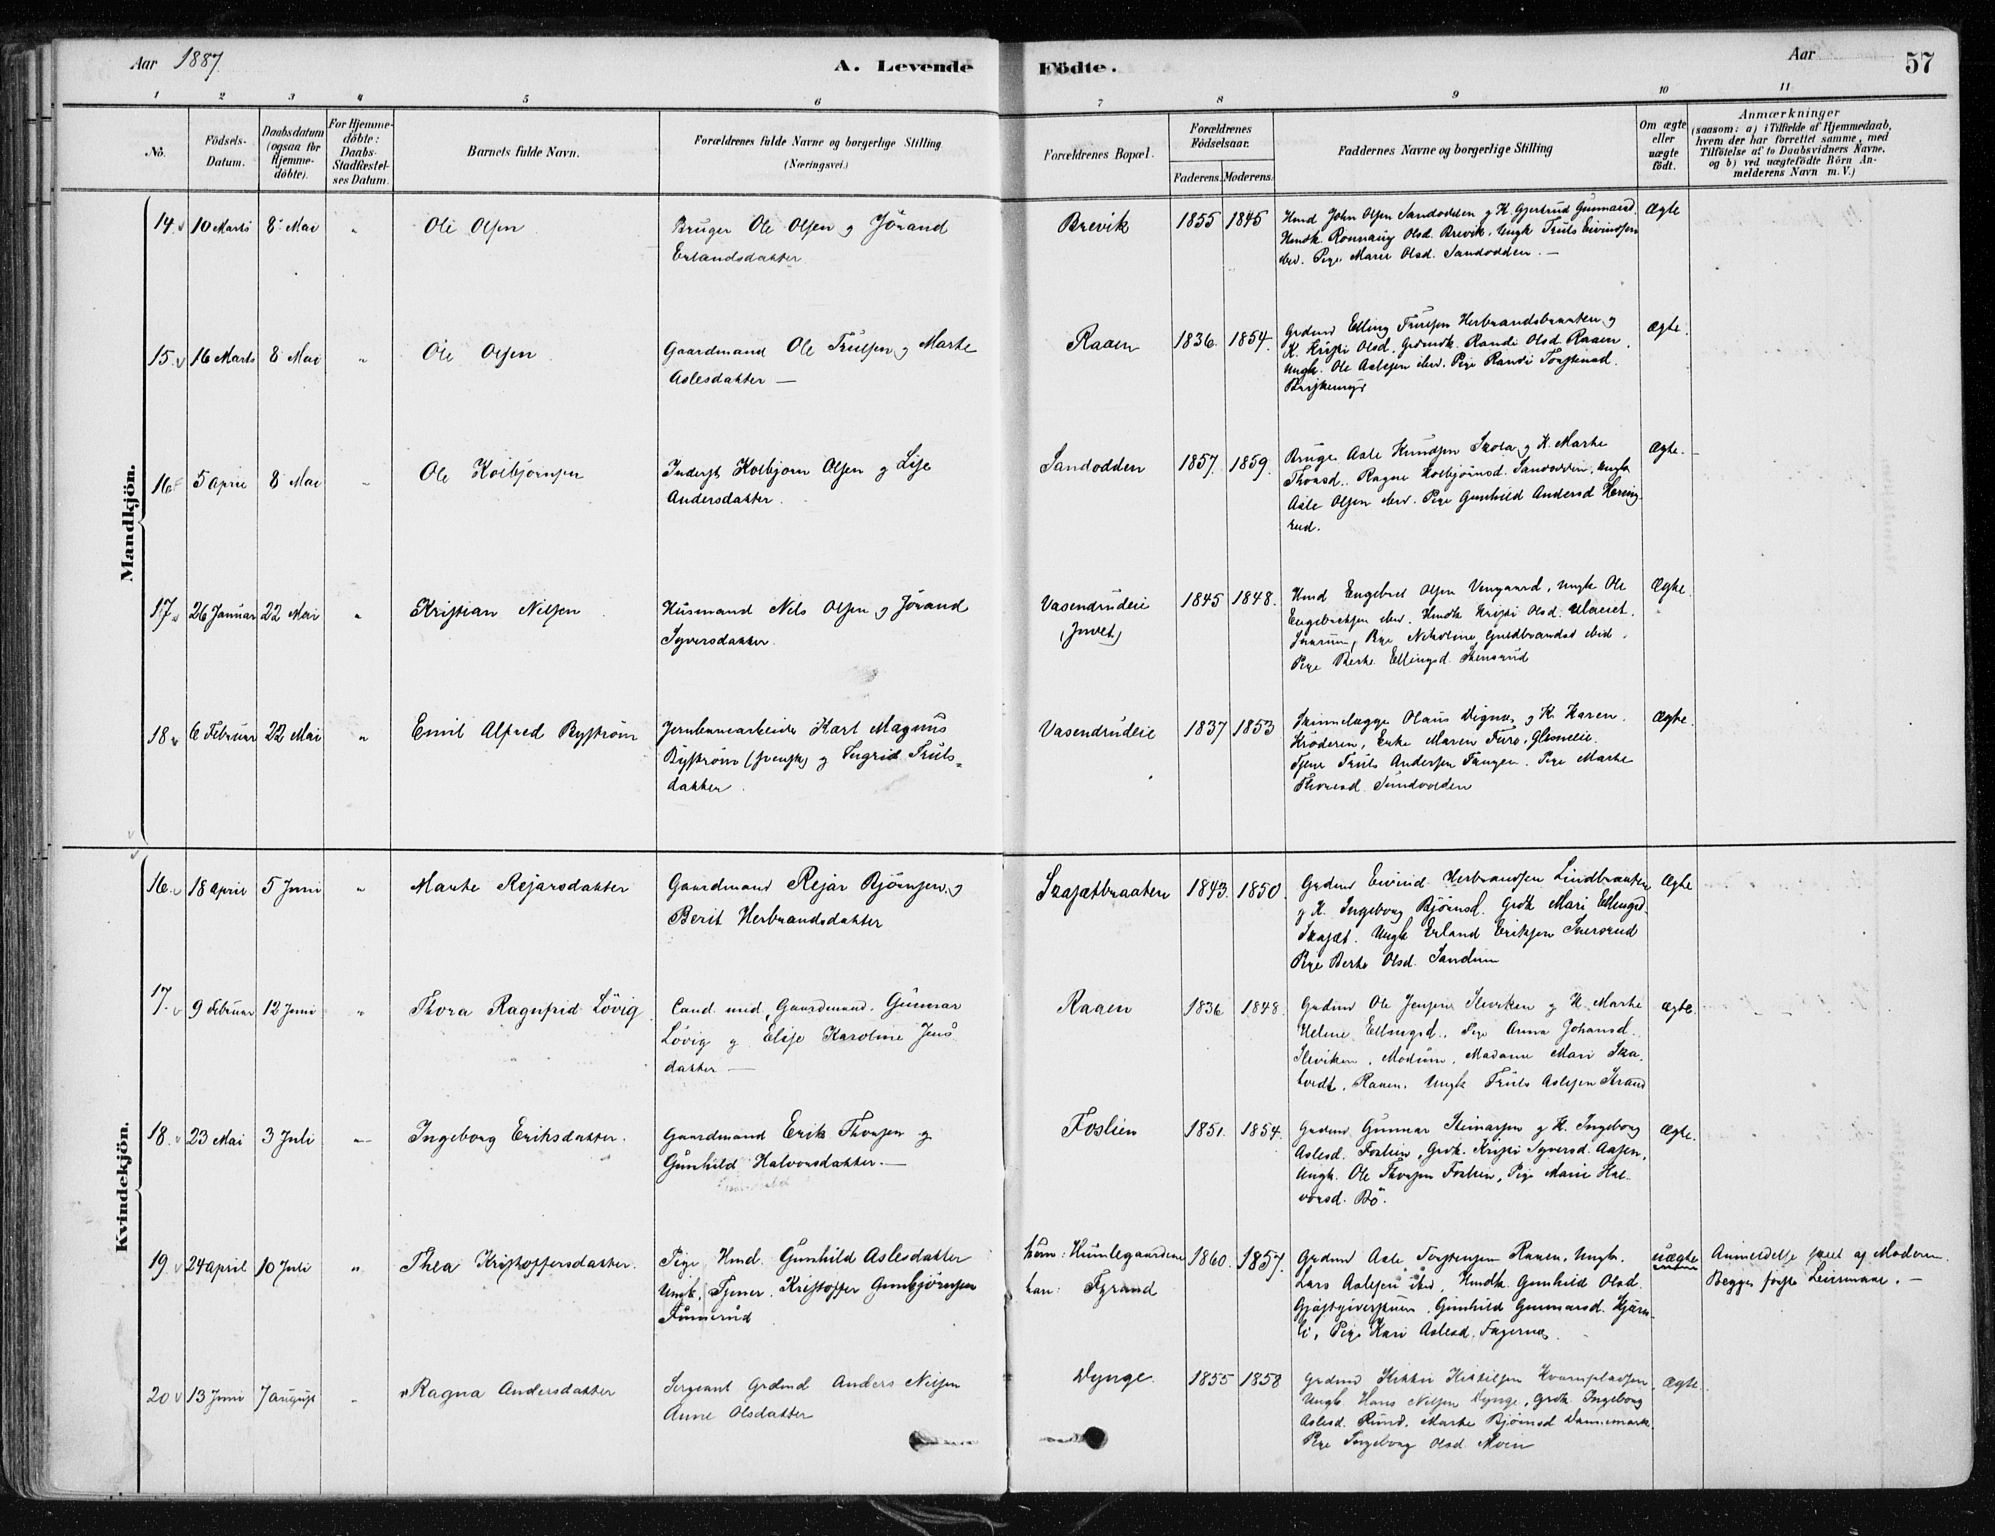 Aar 1887.
A. Levende Födte.
Aar
57
1 2 3 4 5 6 7 8 9 10 11
No.
Födsels-
Datum.
Daabsdatum
(ogsaa for
Hjemme-
döbte).
For Hjemme-
döbte:
Daabs-
Stadfæstel-
ses Datum.
Barnets fulde Navn.
Forældrenes fulde Navne og borgerlige Stilling
(Næringsvei.)
Forældrenes Bopæl.
Forældrenes
Födselsaar.
Faderens. Moderens.
Faddernes Navne og borgerlige Stilling
Om ægte
eller
uægte
födt.
Anmærkninger
(saasom: a) i Tilfælde af Hjemmedaab,
hvem der har forrettet samme, med
Tilföielse af to Daabsvidners Navne,
og b) ved uægtefödte Börn An-
melderens Navn m. V.)
Mandkjön.
14. 10 Marts 8 Mai " Ole Olsen
Bruger Ole Olsen og Jörand
Erlandsdatter
Brevik 1855 1845
Hmd John Olsen Sandodden og K. Gjertrud Gunnarsd.
Hmdk. Rønnaug Olsd. Brevik. Ungk Truls Eivindsen
ibid. Pige Marie Olsd. Sandodden. —
Ægte
15. 16 Marts 8 Mai " Ole Olsen
Gaardmand Ole Trulsen og Marte
Aslesdatter —
Raaen 1836. 1854.
Grdmd Elling Trulsen Herbrandsbraaten og
K. Kristi Olsd. Grdmdk. Randi Olsd. Raaen.
Ungk. Ole Aslesen ibid. Pige Randi Torstensd.
Ægte.
16 5 April 8 Mai " Ole Kolbjørnsen
Inderst Kolbjørn Olsen og Lise
Andersdatter.
Sandodden 1857. 1859.
Bruge Asle Knudsen Skola og K. Marte
Thorsd. Ragne Kolbjørnsd. Sandodden. Ungk
Asle Olsen ibid. Pige Gunhild Andersd Hering
rud.
Ægte.
17. 26 Januar 22 Mai " Kristian Nilsen
Husmand Nels Olsen og Jörand
Syversdatter.
Vasendrudeie
1845 1848.
Hmd Engebret Olsen Vengaard, Ungk Ole
Engebretsen ibid. Hmdk Kristi Olsd.
Snarum, Pige Nikoline Guldbrandsd ibid.
Pige Berte Ellingsd. Stensrud
Ægte.
18. 6 Februar 22 Mai " Emil Alfred Byström
Jernbanearbeider Karl Magnus
Byström (svensk) og Ingrid Truls-
datter.
Vasendrudeie 1837 1853
Olaus og K. Karen.
Kröderen, Enke Maren Furo,
Tjene Truls Andersen Tangen. Pige Marte
Thoresd. Sandodden
Ægte.
Kvindekjön.
16. 18 April 5 Juni " Marte Rejarsdatter
Gaardmand Rejar Bjørnsen og
Berit Herbrandsdatter
Skafætbraaten 1843. 1850.
Grdmd Eivind Herbrandsen Lindbraaten
og K. Ingeborg Bjørnsd. Grdk Mari Ellingsd.
Skafæt. Ungk Erland Eriksen Snersrud
Pige Berte Olsd. Sandum
Ægte
17. 9 Februar 12 Juni " Thora Ragnfrid Lövig
Cand. med, Gaardmand. Gunnar
Lövig og Elise Karoline Jens
datter —
Raaen 1836 1848.
Grdmd Ole Jensen Sleviken og K. Marte
Helene Ellingsd., Pige Anna Johansd.
Sleviken, Modum, Madame Mari Ska
tvedt, Raaen. Ungk Truls Aslesen Strand
Ægte.
18. 23 Mai 3 Juli — Ingeborg Eriksdatter.
Gaardmand Erik Thorsen og
Gunhild Halvorsdatter. —
Foslien 1851. 1854.
Grdmd. Gunnar Steinarsen og K. Ingeborg
Aslesd. Foslien, Grdk. Kristi Syversd. Aasen,
Ungk. Ole Thorsen Foslien, Pige Marie Hal-
vorsd. Bö.
Ægte.
19. 24 April 10 Juli " Thea Kristoffersdatter.
Pige Hmd. Gunhild Aslesdatter
Ungk. Tjener. Kristoffer Gunbjørnsen
Finnerud
hun: Humlegaardene
han: Fyrand
1860. 1857.
Grdmd Asle Torstensen Raaen, Ungk.
Lars Aslesen ibid, Hmdk Gunhild Olsd.
Gunhild Gunnarsd.
Pige Kari Aslesd. Fagernæs.
uægte
Anmeldelse skeet af Moderen
Begges første Leiermaal. —
20 13 Juni 7 August " Ragna Andersdatter
Sergeant Grdmd Anders Nilsen
Anne Olsdatter
Dynge 1855 1858
Grdmd Kittil Kittilsen
Ungk. Hans Nilsen Dynge, Grdk Ingeborg
Aslesd. Rund. Marte Bjørnsd Dannemark
Pige Ingeborg Olsd. Moen
Ægte.